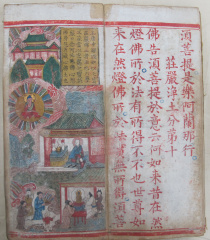 須菩提是樂阿蘭那行
莊嚴淨土分第十
佛告須菩提於意云何如來昔在然
燈佛所於法有所得不不也世尊如
來在然燈佛所於法實無所得須菩